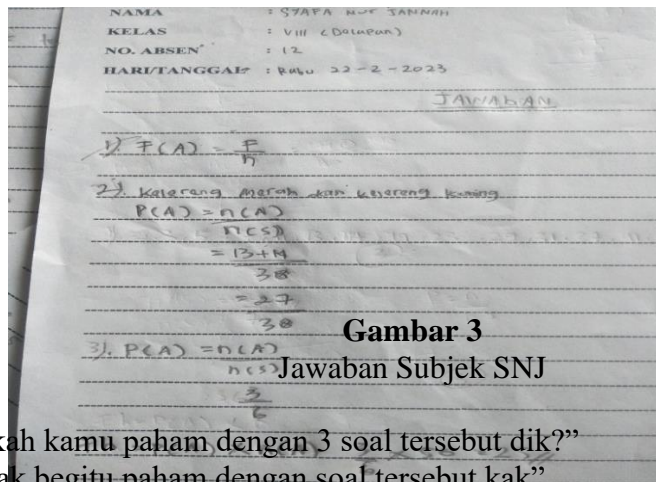 NAMA : SYAFA NUR JANNAH
KELAS : VIII (Delapan)
NO. ABSEN : 12
HARI/TANGGAL : Rabu 22-2-2023
JAWABAN
1) F(A) = F
n
2). Kelereng Merah dan kelereng kuning
P(A) = n(A)
n(S)
= 13+14
38
= 27
38
Gambar 3
3). P(A) = n(A)
n(S)
Jawaban Subjek SNJ
3
6
kah kamu paham dengan 3 soal tersebut dik?”
ak begitu paham dengan soal tersebut kak”